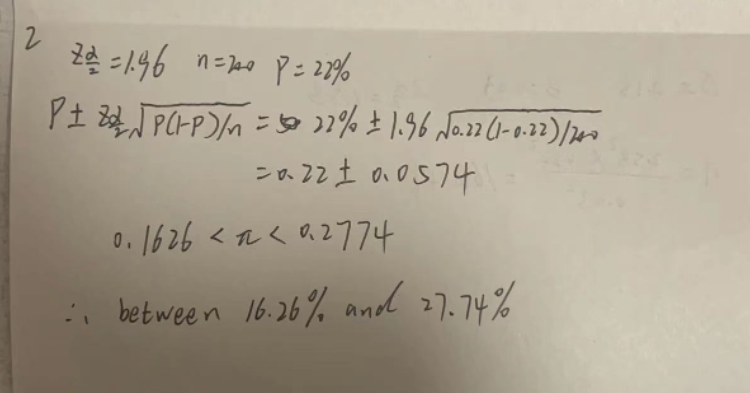 2
Zα/2 = 1.96 n=200 P=22%
P ± Zα/2 √P(1-P)/n = 22% ± 1.96 √0.22(1-0.22)/200
= 0.22 ± 0.0574
0.1626 < π < 0.2774
∴ between 16.26% and 27.74%